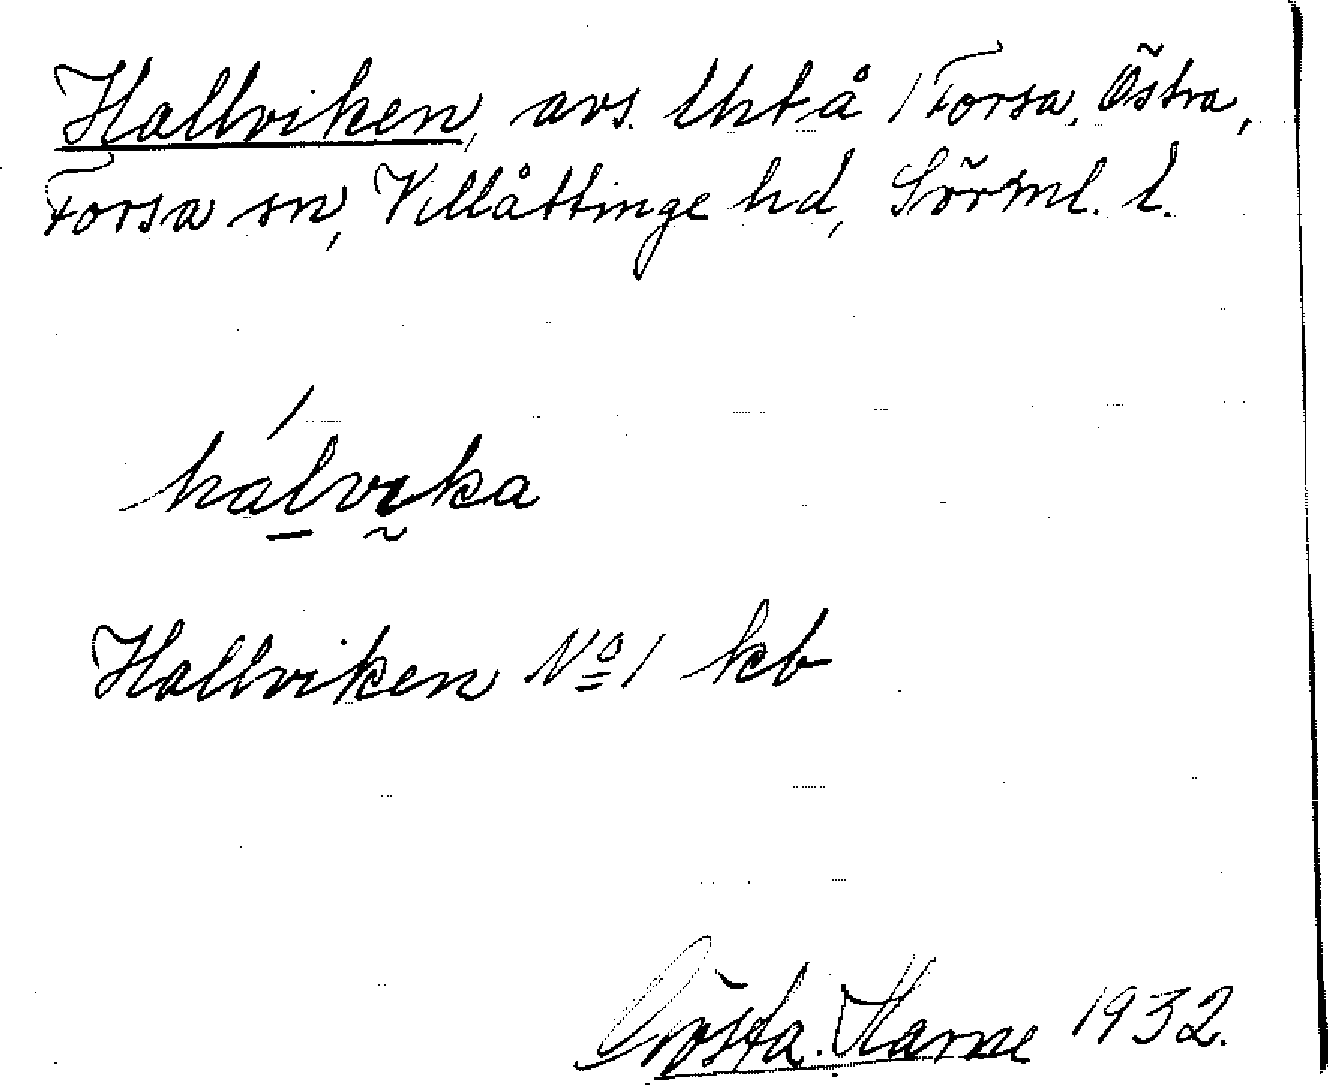 Hallviken, avs. Uhtå 1 Forsa, Östra,
Forsa sn, Villåttinge hd, Sörml. l.
hálvika
Hallviken No 1 kb
Gösta Karne 1932.